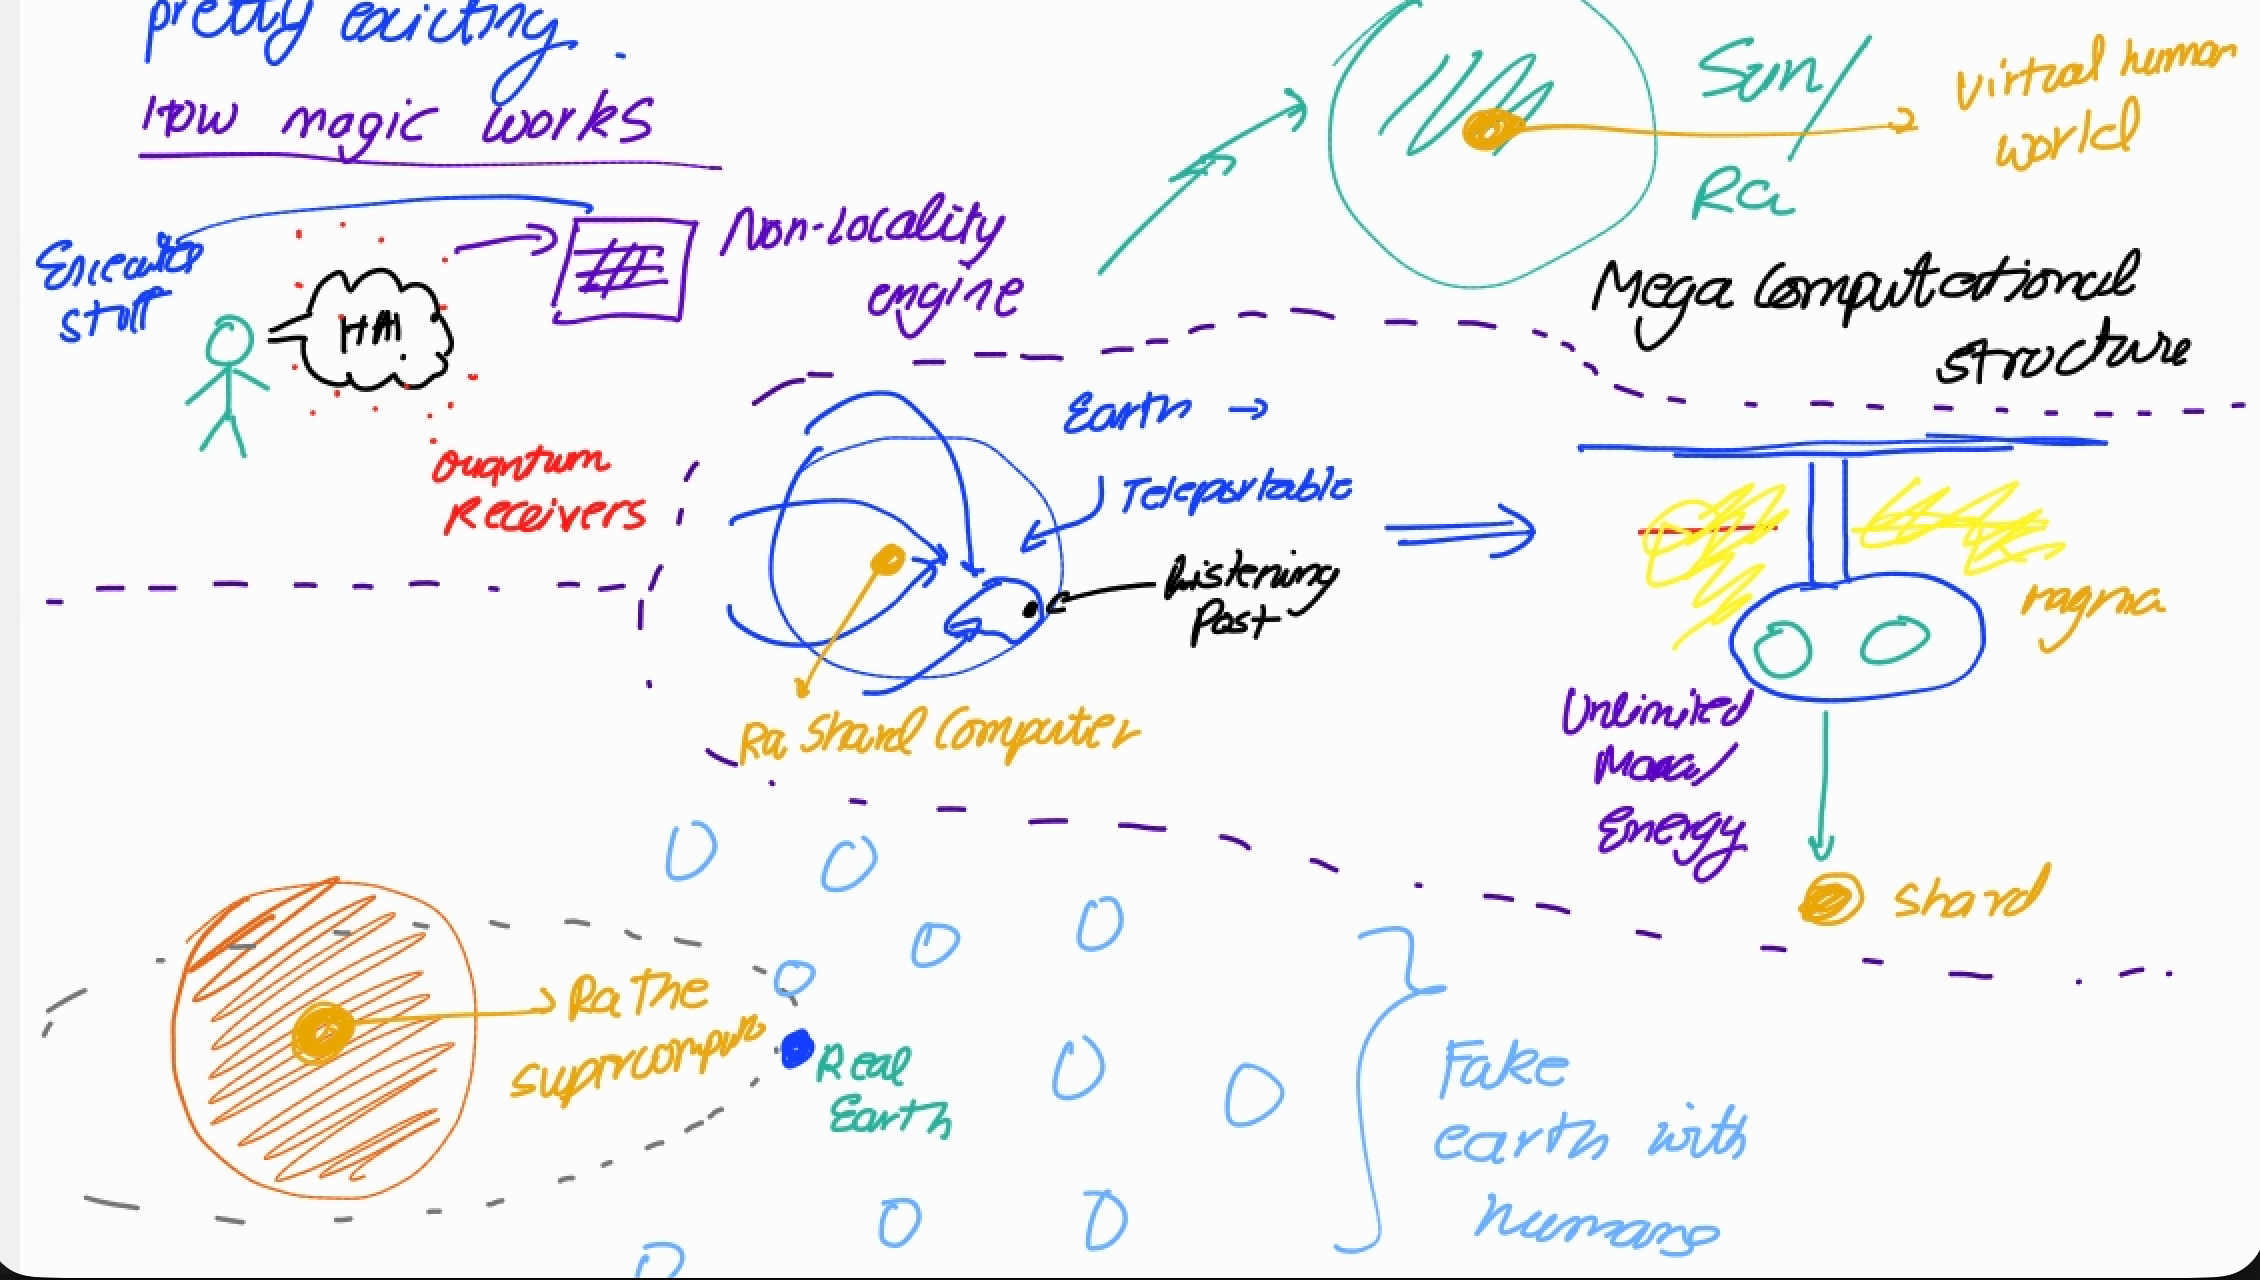 pretty exicting.
How magic works
Sun/
Ra
Virtual human
world
Non-locality
engine
stuff
HM!
Mega Computational
structure
Quantum
Receivers
Earth →
Teleportable
Listening
Post
Ra Shard Computer
ragma
Unlimited
Mana/
Energy
Shard
Ra The
Real
Earth
Fake
earth with
humans